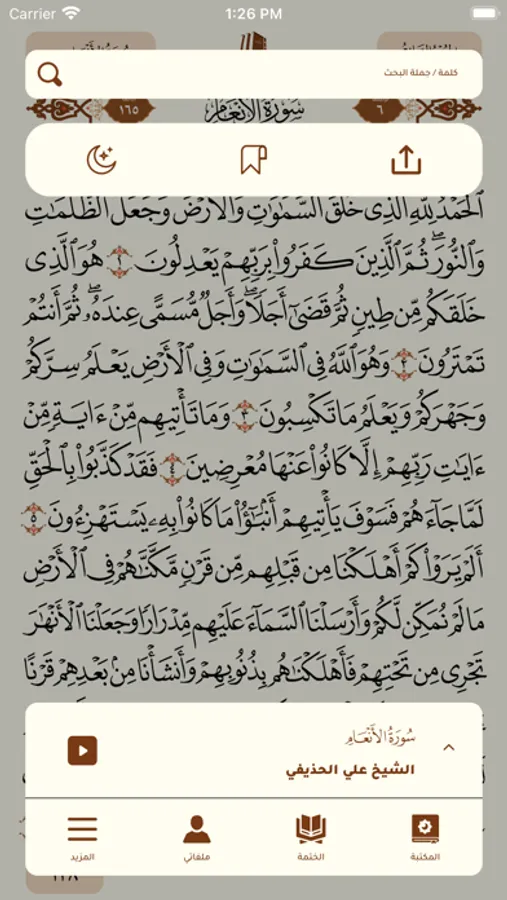 Carrier 1:26 PM
كلمة / جملة البحث
٦ سورة الأنعام ١٦٥
ٱلۡحَمۡدُ لِلَّهِ ٱلَّذِي خَلَقَ ٱلسَّمَٰوَٰتِ وَٱلۡأَرۡضَ وَجَعَلَ ٱلظُّلُمَٰتِ
وَٱلنُّورَۖ ثُمَّ ٱلَّذِينَ كَفَرُواْ بِرَبِّهِمۡ يَعۡدِلُونَ ١ هُوَ ٱلَّذِي
خَلَقَكُم مِّن طِينٖ ثُمَّ قَضَىٰٓ أَجَلٗاۖ وَأَجَلٞ مُّسَمًّى عِندَهُۥۖ ثُمَّ أَنتُمۡ
تَمۡتَرُونَ ٢ وَهُوَ ٱللَّهُ فِي ٱلسَّمَٰوَٰتِ وَفِي ٱلۡأَرۡضِ يَعۡلَمُ سِرَّكُمۡ
وَجَهۡرَكُمۡ وَيَعۡلَمُ مَا تَكۡسِبُونَ ٣ وَمَا تَأۡتِيهِم مِّنۡ ءَايَةٖ مِّنۡ
ءَايَٰتِ رَبِّهِمۡ إِلَّا كَانُواْ عَنۡهَا مُعۡرِضِينَ ٤ فَقَدۡ كَذَّبُواْ بِٱلۡحَقِّ
لَمَّا جَآءَهُمۡ فَسَوۡفَ يَأۡتِيهِمۡ أَنۢبَٰٓؤُاْ مَا كَانُواْ بِهِۦ يَسۡتَهۡزِءُونَ ٥
أَلَمۡ يَرَوۡاْ كَمۡ أَهۡلَكۡنَا مِن قَبۡلِهِم مِّن قَرۡنٖ مَّكَّنَّٰهُمۡ فِي ٱلۡأَرۡضِ
مَا لَمۡ نُمَكِّن لَّكُمۡ وَأَرۡسَلۡنَا ٱلسَّمَآءَ عَلَيۡهِم مِّدۡرَارٗا وَجَعَلۡنَا ٱلۡأَنۡهَٰرَ
تَجۡرِي مِن تَحۡتِهِمۡ فَأَهۡلَكۡنَٰهُم بِذُنُوبِهِمۡ وَأَنشَأۡنَا مِنۢ بَعۡدِهِمۡ قَرۡنًا
سُورَةُ الأَنْعَامِ
الشيخ علي الحذيفي
المكتبة الختمة ملفاتي المزيد
١٢٨